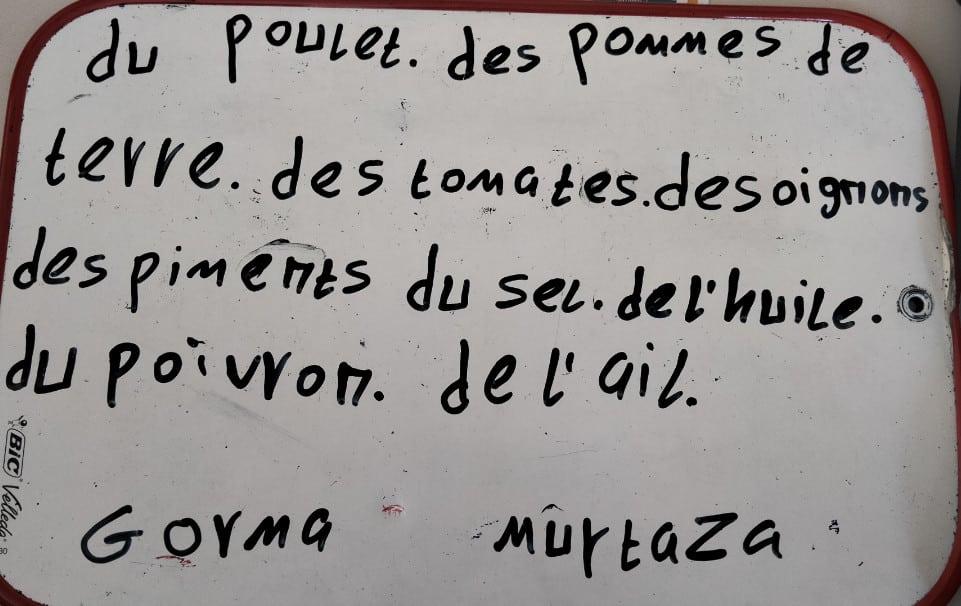 du poulet. des pommes de
terre. des tomates. des oignons
des piments du sel. de l'huile.
du poivron. de l'ail.
Gorma murtaza
BIC Velleda